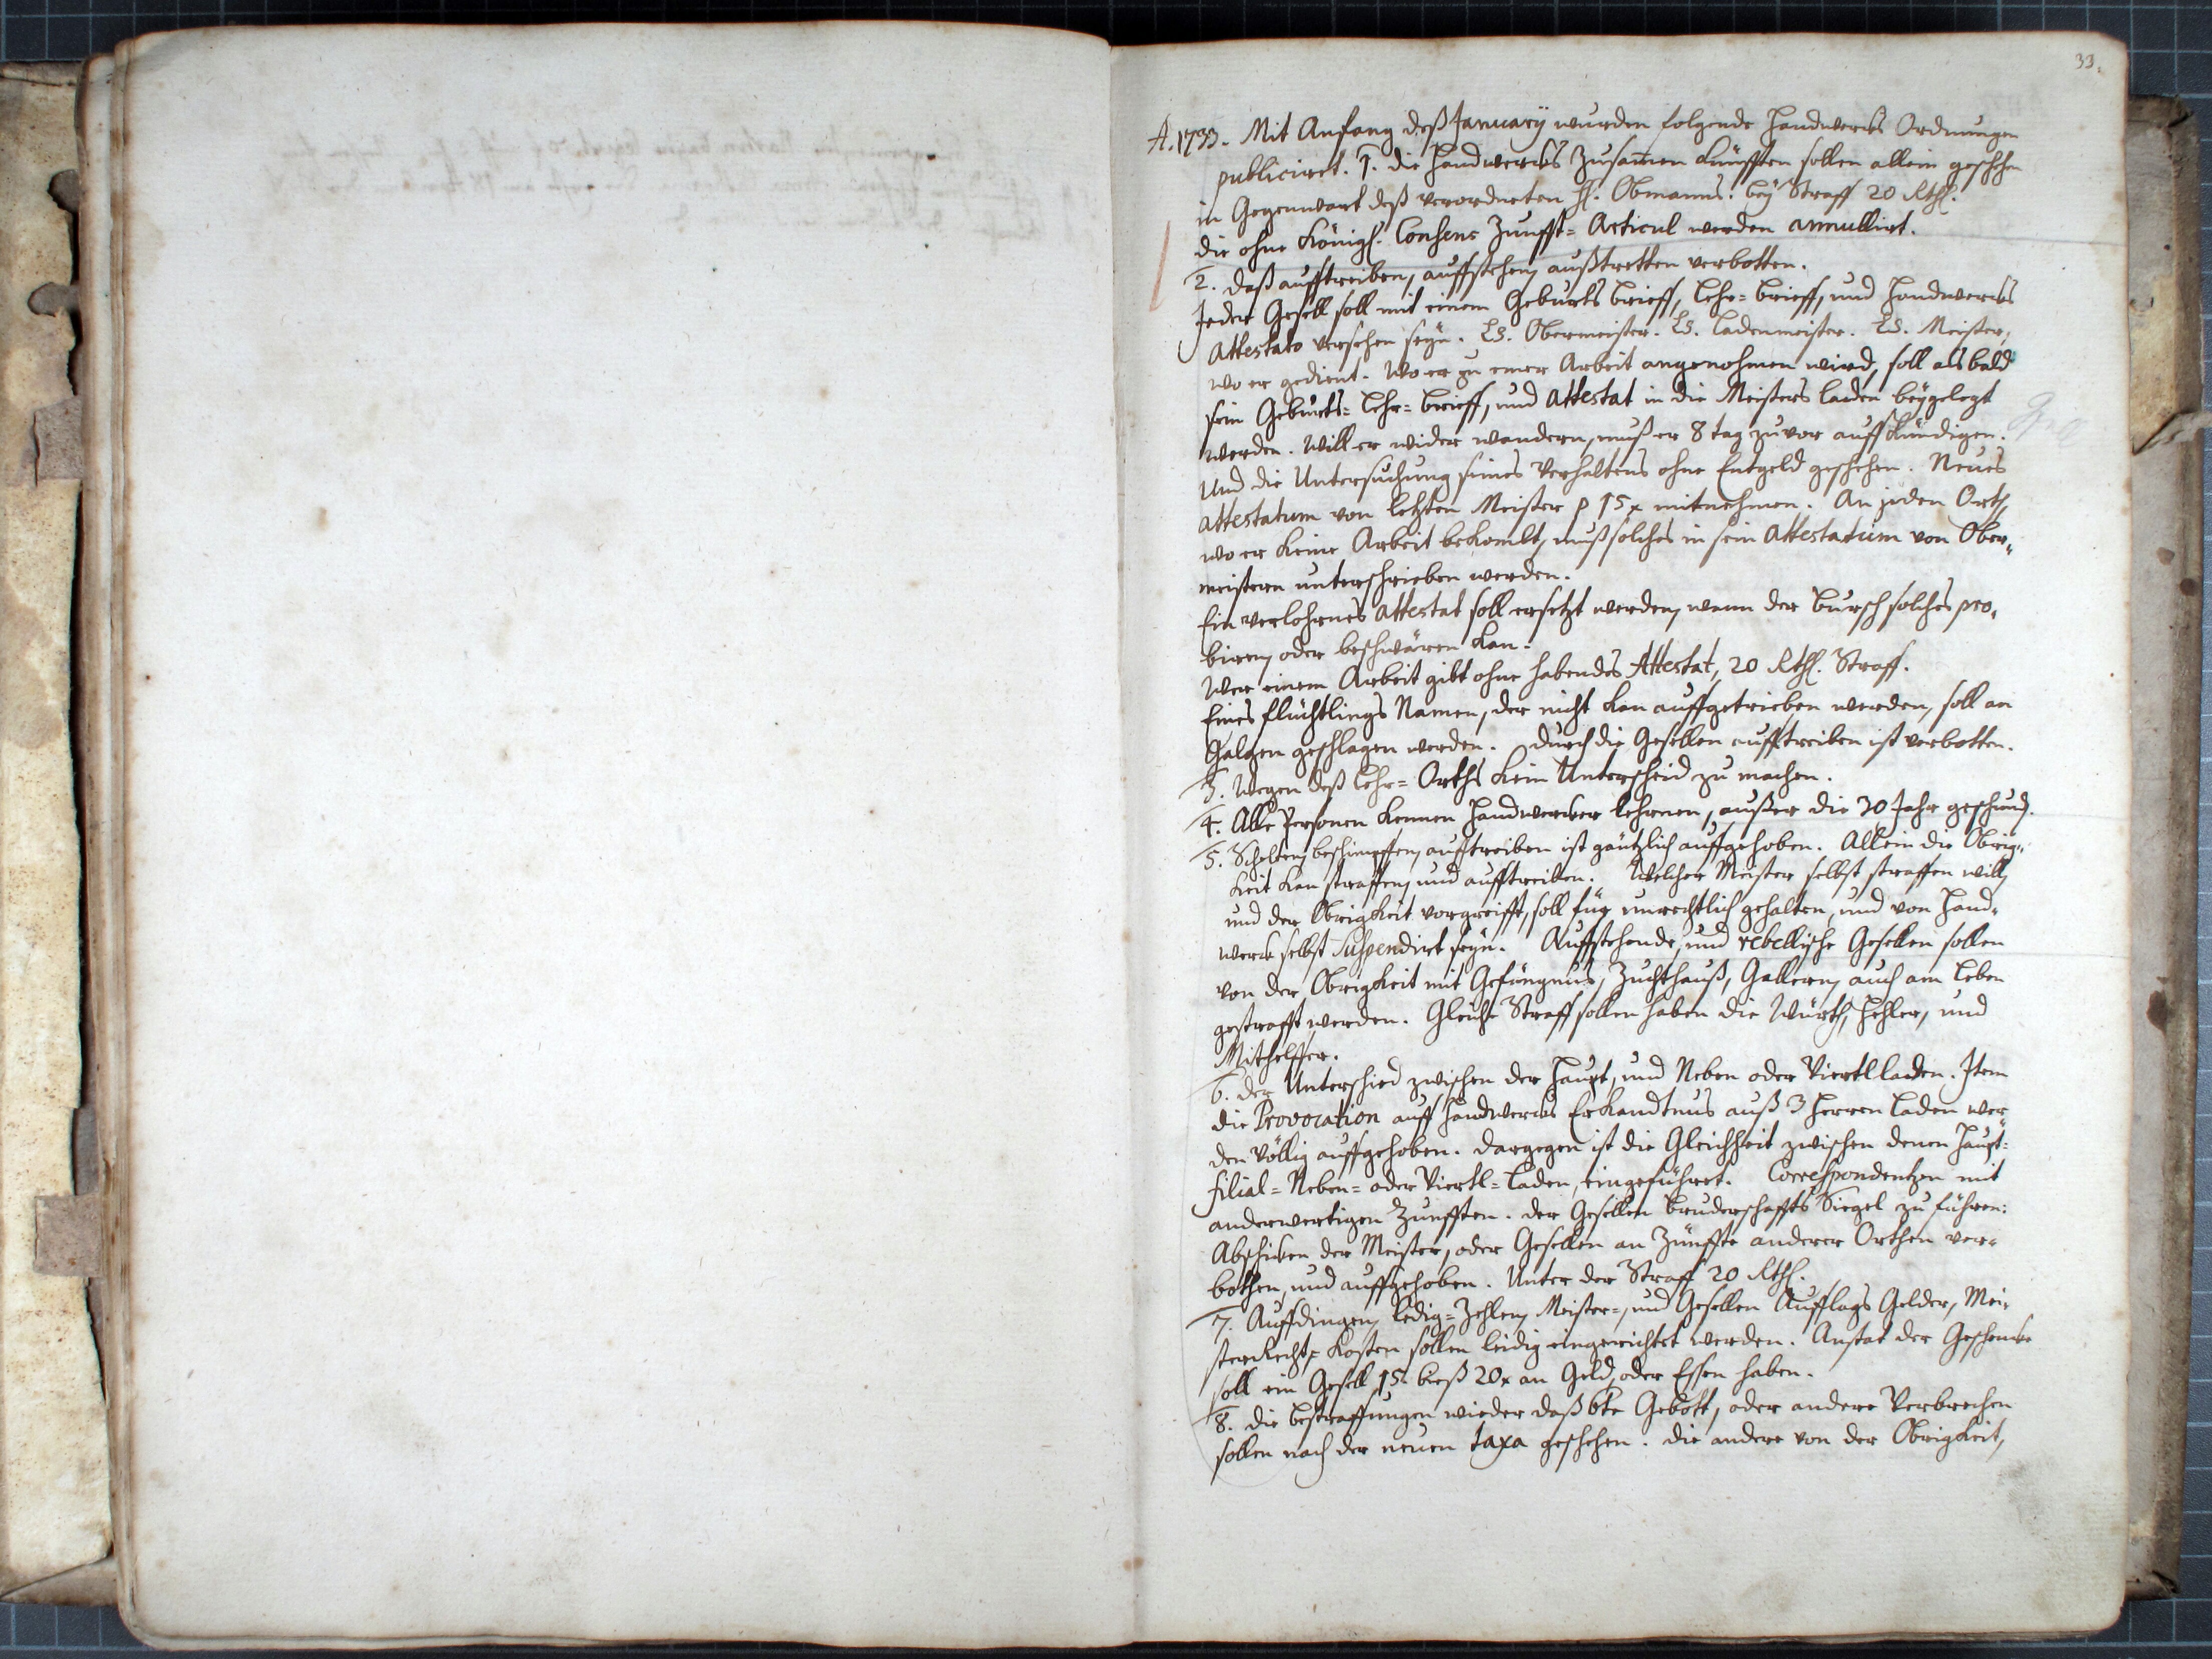 33.
A. 1733. Mit Anfang deß January wurden folgende Handwercks Ordnungen
publiciret. 1. die Handwercks Zusam̅en Künfften sollen allein geschehen
in Gegenwart deß verordneten H. Obmanns: bey Straff 20 Rthl.
die ohne Königl. Consens Zunfft= Articul werden annullirt.
2. daß aufftreiben, auffstehen, außtretten verbotten.
Jeder Gesell soll mit einem Geburts brieff, Lehr= brieff, und Handwercks
Attestato versehen seyn. LS. Obermeister. LS. Ladenmeister. LS. Meister,
wo er gedient. Wo er zu einer Arbeit angenohmen wird, soll als bald
sein Geburts= Lehr= brieff, und Attestat in die Meisters laden beygelegt
werden. Will er wider wandern, muß er 8 tag zuvor auffkündigen.
Und die Untersuchung seines Verhaltens ohne Entgeld geschehen. Neues
Attestatum von letzten Meister p 15 x mitnehmen. An jeden Orth,
wo er keine Arbeit bekombt, muß solches in sein Attestatum von Ober„
meistern unterschrieben werden.
Ein verlohrnes Attestat soll ersetzt werden, wann der Bursch solches pro„
biren, oder beschwären kan.
Wer einem Arbeit gibt ohne habendes Attestat, 20 Rthl. Straff.
Eines flüchtlings Namen, der nicht kan auffgetrieben werden, soll an
Galgen geschlagen werden. Durch die Gesellen aufftreiben ist verbotten.
3. Wegen deß Lehr= Orths kein Unterscheid zu machen.
4. Alle Personen kennen Handwercker lehrnen, außer die 30 Jahr geschund.
5. Schelten, beschimpffen, aufftreiben ist gäntzlich auffgehoben. Allein die Obrig„
keit kan straffen, und aufftreiben. Welcher Meister selbst straffen will,
und der Obrigkeit vorgreifft, soll für unrechtlich gehalten, und von Hand„
werck selbst suspendirt seyn. Auffstehende, und rebellische Gesellen sollen
von der Obrigkeit mit Gefängnus, Zuchthauß, Galleren, auch am Leben
gestrafft werden. Gleiche Straff sollen haben die Würth, Hehler, und
Mithelffer.
6. der Unterschied zwischen der Haupt, und Neben oder Viertlladen. Item
die Provocation auff Handwercks Erkandtnus auß 3 Herren Laden wer„
den völlig auffgehoben. Dargegen ist die Gleichheit zwischen denen Haupt=
filial= Neben= oder Viertl= Laden, eingeführet. Correspondentzen mit
anderwertigen Zunfften. der Gesellen Bruderschaffts Siegel zu führen:
Abschicken der Meister, oder Gesellen an Zünffte anderer Orthen ver„
botten, und auffgehoben. Unter der Straff 20 Rthl.
7. Auffdingen, Ledig= Zehlen, Meister=, und Gesellen Aufflags Gelder, Mei„
sterRechts Kosten sollen leidig eingerichtet werden. Anstat der Geschencke
soll ein Gesell 15. bieß 20 x an Geld, oder Essen haben.
8. die Bestraffungen wieder daß 6te Gebott, oder andere Verbrechen
sollen nach der neuen taxa geschehen. die andere von der Obrigkeit,